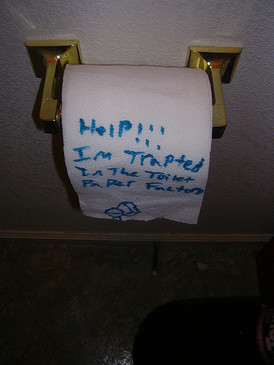 HelP!!!
Im Trapted
In The Toilet
PaPer Factory